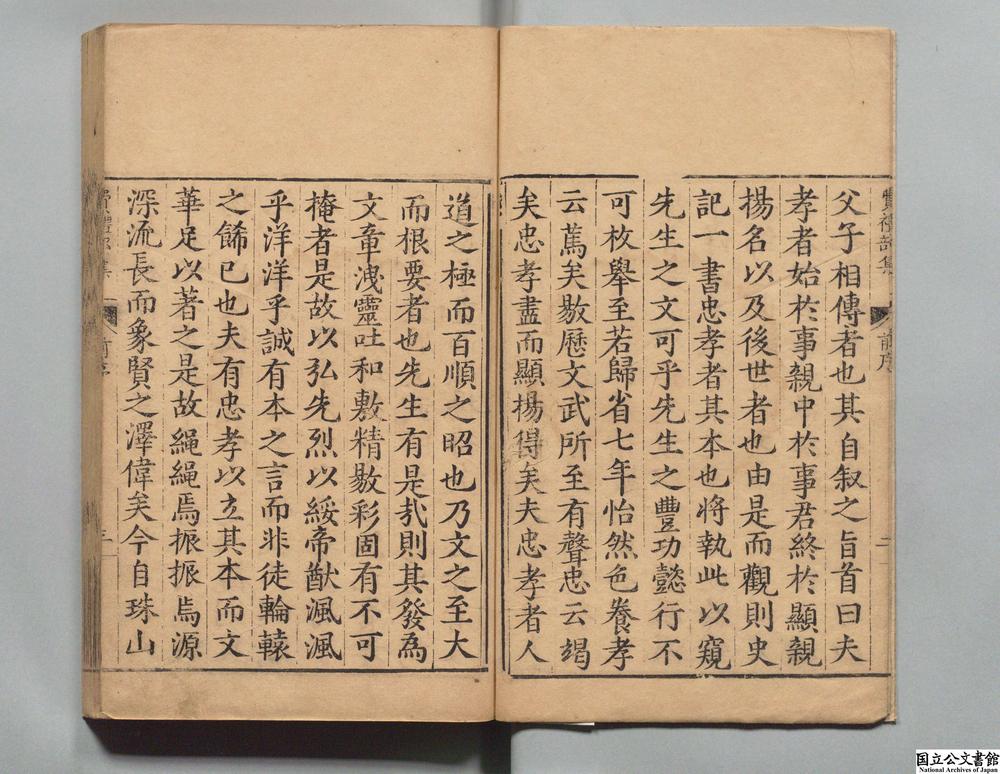 父子相傳者也其自叙之旨首曰夫
孝者始於事親中於事君終於顯親
揚名以及後世者也由是而觀則史
記一書忠孝者其本也將執此以窺
先生之文可乎先生之豐功懿行不
可枚舉至若歸省七年怡然色養孝
云篤矣敭歷文武所至有聲忠云竭
矣忠孝盡而顯揚得矣夫忠孝者人
前序
二
道之極而百順之昭也乃文之至大
而根要者也先生有是弐則其發為
文章洩靈吐和敷精敭彩固有不可
掩者是故以弘先烈以綏帝猷渢渢
乎洋洋乎誠有本之言而非徒輪轅
之餙已也夫有忠孝以立其本而文
華足以著之是故繩繩焉振振焉源
深流長而象賢之澤偉矣今自珠山
前序
三
国立公文書館
National Archives of Japan